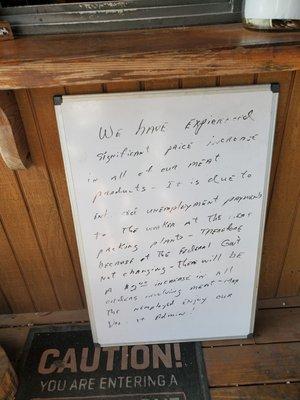 We have experienced
significant price increase
in all of our meat
products - It is due to
unemployment payments
to the worker at the meat
packing plants - Therefore
because of the Federal Govt
Not changing - there will be
A $2.00 increase in all
orders involving meat - may
the unemployed enjoy our
CAUTION!
YOU ARE ENTERING A